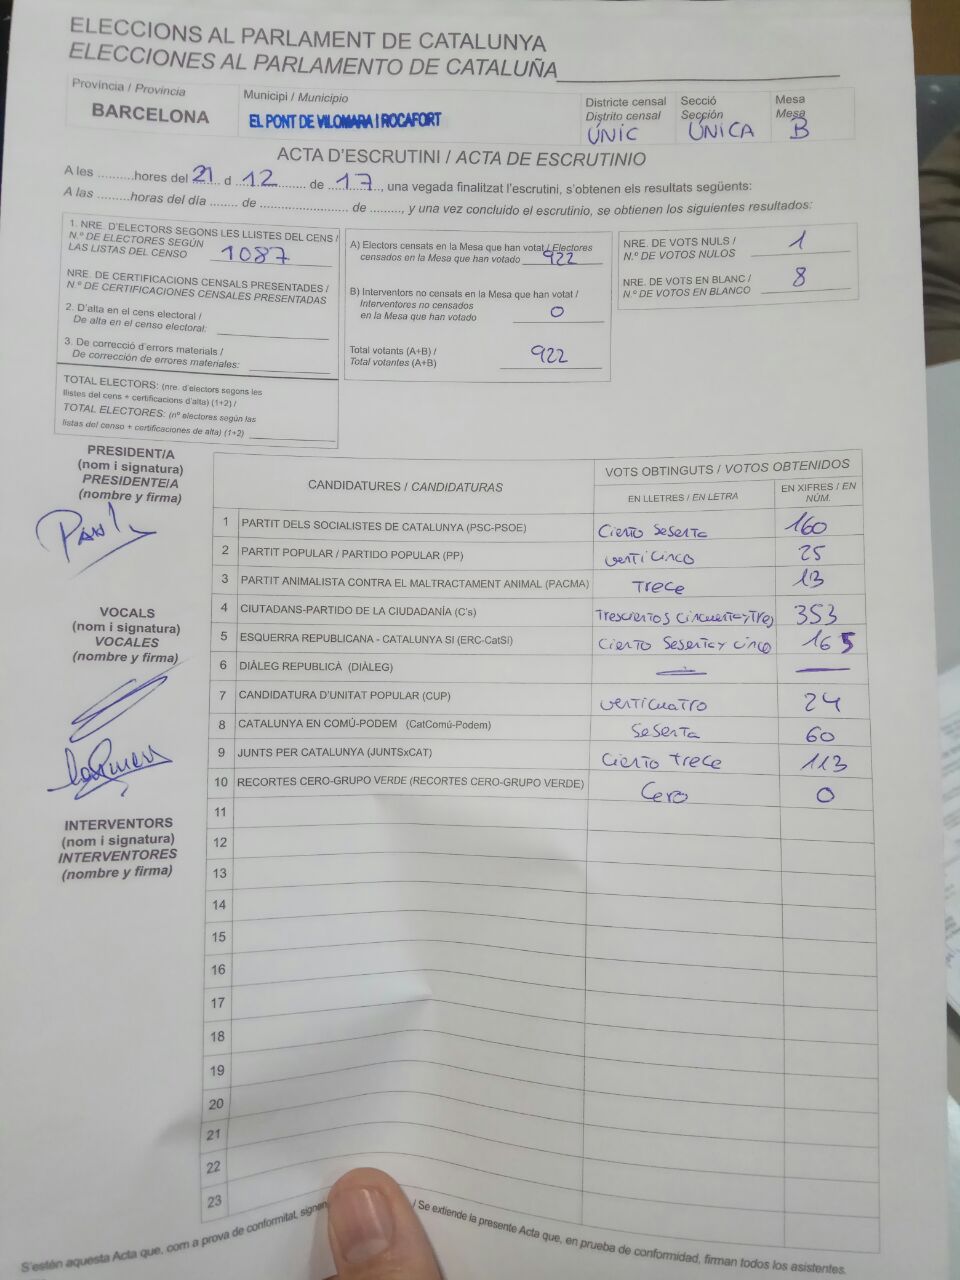 ELECCIONS AL PARLAMENT DE CATALUNYA
ELECCIONES AL PARLAMENTO DE CATALUÑA
Província / Provincia
BARCELONA
Municipi / Municipio
EL PONT DE VILOMARA I ROCAFORT
Districte censal
Distrito censal
ÚNIC
Secció
Sección
ÚNICA
Mesa
Mesa
B
ACTA D'ESCRUTINI / ACTA DE ESCRUTINIO
A les ..........hores del 21 d 12 de 17, una vegada finalitzat l'escrutini, s'obtenen els resultats següents:
A las .........horas del día ........ de ......................... de ........., y una vez concluido el escrutinio, se obtienen los siguientes resultados:
1. NRE. D'ELECTORS SEGONS LES LLISTES DEL CENS /
N.º DE ELECTORES SEGÚN
LAS LISTAS DEL CENSO 1087
NRE. DE CERTIFICACIONS CENSALS PRESENTADES /
N.º DE CERTIFICACIONES CENSALES PRESENTADAS
2. D'alta en el cens electoral /
De alta en el censo electoral:
3. De correcció d'errors materials /
De corrección de errores materiales:
TOTAL ELECTORS: (nre. d'electors segons les
llistes del cens + certificacions d'alta) (1+2) /
TOTAL ELECTORES: (nº electores según las
listas del censo + certificaciones de alta) (1+2)
A) Electors censats en la Mesa que han votat / Electores
censados en la Mesa que han votado 922
B) Interventors no censats en la Mesa que han votat /
Interventores no censados
en la Mesa que han votado 0
Total votants (A+B) /
Total votantes (A+B) 922
NRE. DE VOTS NULS /
N.º DE VOTOS NULOS 1
NRE. DE VOTS EN BLANC /
N.º DE VOTOS EN BLANCO 8
PRESIDENT/A
(nom i signatura)
PRESIDENTE/A
(nombre y firma)
VOCALS
(nom i signatura)
VOCALES
(nombre y firma)
INTERVENTORS
(nom i signatura)
INTERVENTORES
(nombre y firma)
CANDIDATURES / CANDIDATURAS
VOTS OBTINGUTS / VOTOS OBTENIDOS
EN LLETRES / EN LETRA
EN XIFRES / EN NÚM.
1 PARTIT DELS SOCIALISTES DE CATALUNYA (PSC-PSOE) Ciento Sesenta 160
2 PARTIT POPULAR / PARTIDO POPULAR (PP) venticinco 25
3 PARTIT ANIMALISTA CONTRA EL MALTRACTAMENT ANIMAL (PACMA) Trece 13
4 CIUTADANS-PARTIDO DE LA CIUDADANÍA (C's) Trescientos cincuenta y tres 353
5 ESQUERRA REPUBLICANA - CATALUNYA SI (ERC-CatSí) Ciento Sesenta y cinco 165
6 DIÀLEG REPUBLICÀ (DIÀLEG) — —
7 CANDIDATURA D'UNITAT POPULAR (CUP) venticuatro 24
8 CATALUNYA EN COMÚ-PODEM (CatComú-Podem) Sesenta 60
9 JUNTS PER CATALUNYA (JUNTSxCAT) Ciento trece 113
10 RECORTES CERO-GRUPO VERDE (RECORTES CERO-GRUPO VERDE) Cero 0
11
12
13
14
15
16
17
18
19
20
21
22
23
S'estén aquesta Acta que, com a prova de conformitat, signen / Se extiende la presente Acta que, en prueba de conformidad, firman todos los asistentes.